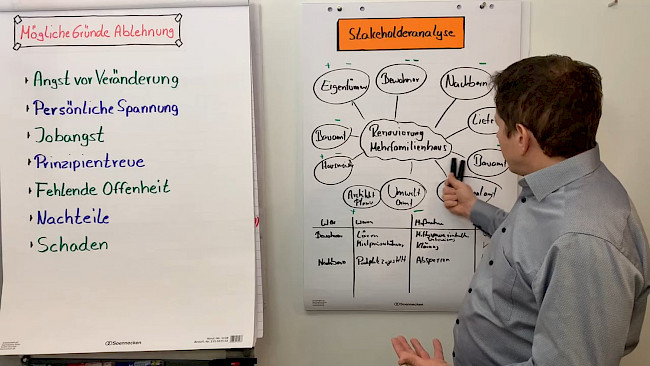 Mögliche Gründe Ablehnung
Angst vor Veränderung
Persönliche Spannung
Jobangst
Prinzipientreue
Fehlende Offenheit
Nachteile
Schaden
Soennecken
Stakeholderanalyse
Eigentümer
Bewohner
Nachbarn
Bauamt
Renovierung
Mehrfamilienhaus
Liefe
Bauamt
Umwelt
Amt
Wer
Warum
Maßnahme
Bewohner
Lärm
Klärung
Nachbarn
Absperren
Soennecken